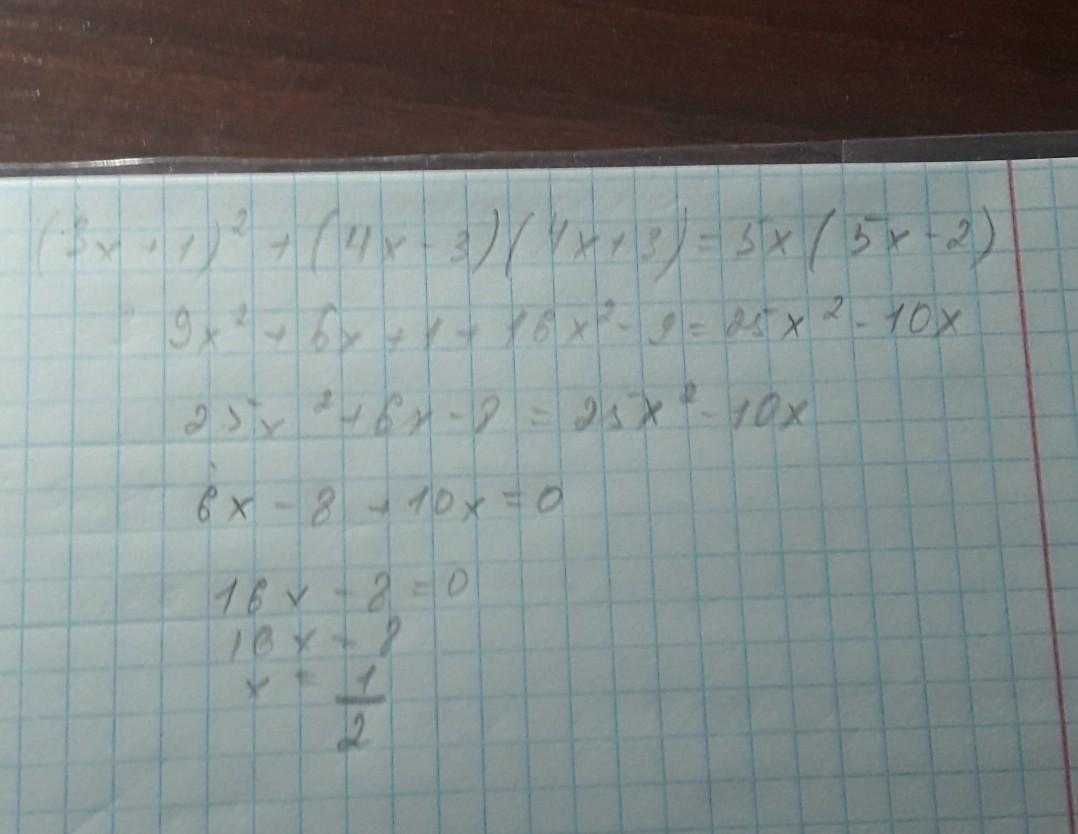 (3x + 1)² + (4x - 3)(4x + 3) = 5x(5x - 2)
9x² + 6x + 1 + 16x² - 9 = 25x² - 10x
25x² + 6x - 8 = 25x² - 10x
6x - 8 + 10x = 0
16x - 8 = 0
16x = 8
x = 1/2